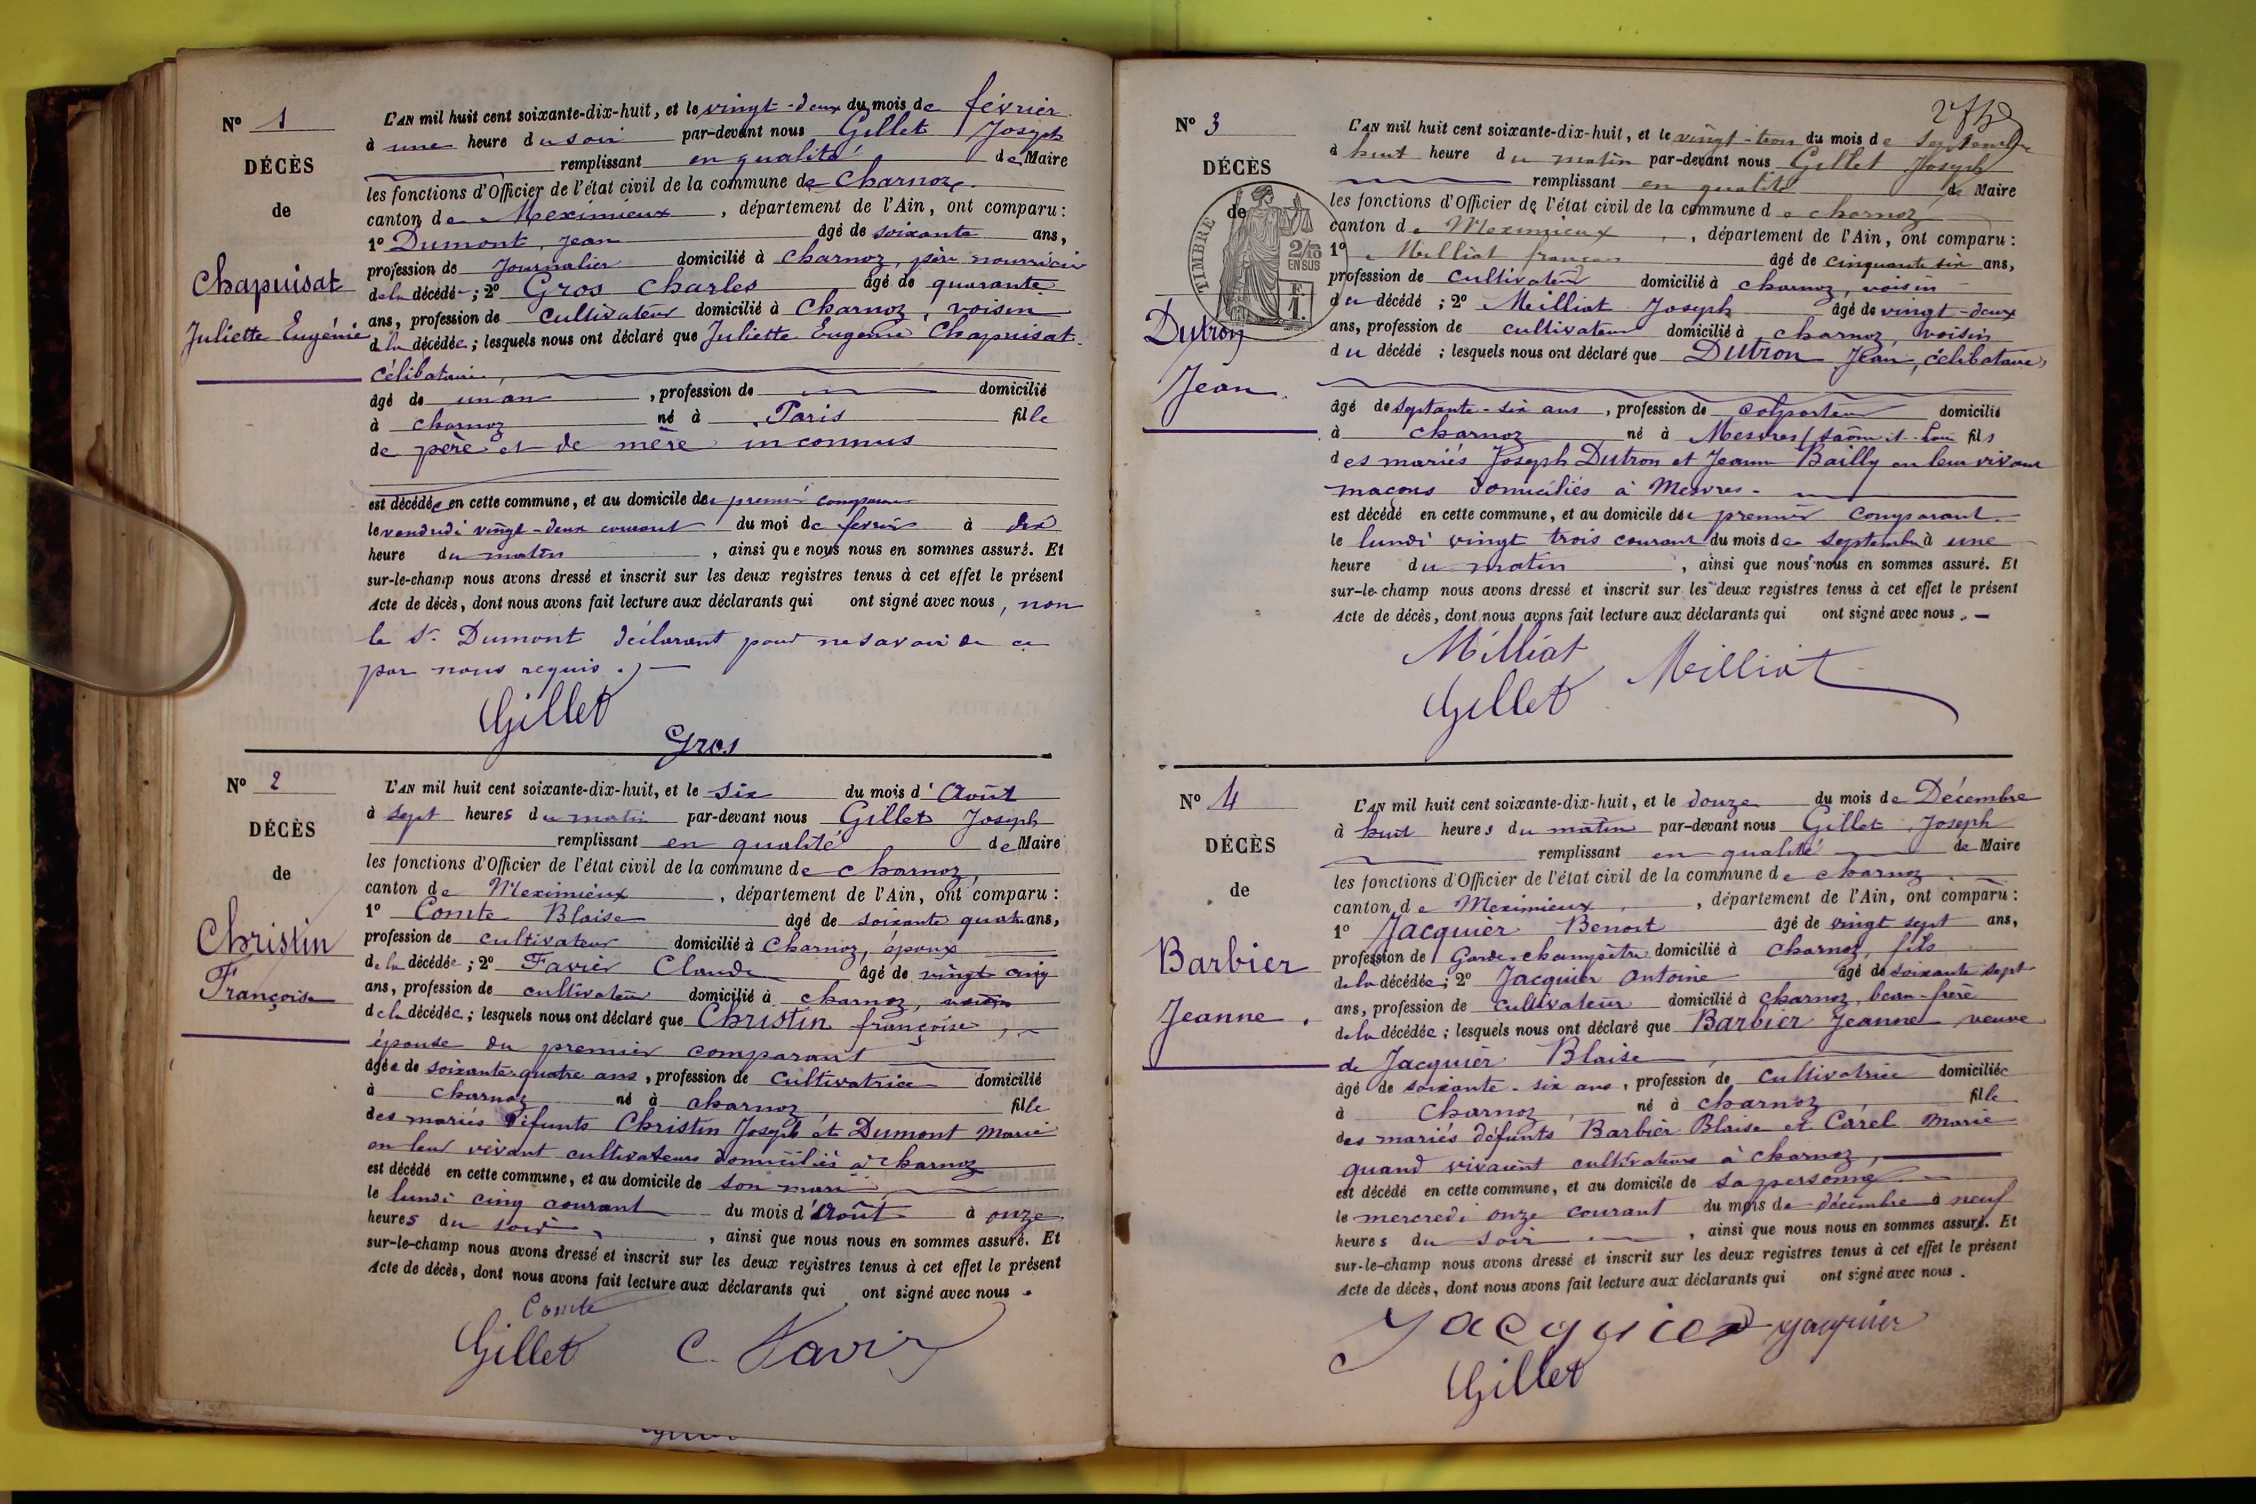 N° 1
DÉCÈS
de
Chapuisat
Juliette Eugénie
L'AN mil huit cent soixante-dix-huit, et le vingt-deux du mois de février
à une heure du soir par-devant nous Gillet Joseph
remplissant en qualité de Maire
les fonctions d'Officier de l'état civil de la commune de Charnoz.
canton de Meximieux, département de l'Ain, ont comparu :
1° Dumont, Jean âgé de soixante ans,
profession de Journalier domicilié à Charnoz, père nourricier
de la décédée ; 2° Gros Charles âgé de quarante
ans, profession de Cultivateur domicilié à Charnoz, voisin
de la décédée ; lesquels nous ont déclaré que Juliette Eugénie Chapuisat.
célibataire,
âgé de un an, profession de domicilié
à Charnoz né à Paris fille
de père et de mère inconnus
est décédée en cette commune, et au domicile du premier comparant
le vendredi vingt-deux courant du moi de février à dix
heure du matin, ainsi que nous nous en sommes assuré. Et
sur-le-champ nous avons dressé et inscrit sur les deux registres tenus à cet effet le présent
Acte de décès, dont nous avons fait lecture aux déclarants qui ont signé avec nous, non
le Sr. Dumont déclarant pour ne savoir de ce
par nous requis.
Gillet
Gros
N° 2
DÉCÈS
de
Christin
Françoise
L'AN mil huit cent soixante-dix-huit, et le six du mois d'Août
à sept heures du matin par-devant nous Gillet Joseph
remplissant en qualité de Maire
les fonctions d'Officier de l'état civil de la commune de Charnoz,
canton de Meximieux, département de l'Ain, ont comparu :
1° Comte Blaise âgé de soixante quatre ans,
profession de cultivateur domicilié à Charnoz, époux
de la décédée ; 2° Favier Claude âgé de vingt cinq
ans, profession de cultivateur domicilié à Charnoz, voisin
de la décédée ; lesquels nous ont déclaré que Christin françoise,
épouse du premier comparant
âgée de soixante-quatre ans, profession de cultivatrice domicilié
à Charnoz né à Charnoz, fille
des mariés défunts Christin Joseph et Dumont Marie
en leur vivant cultivateurs domiciliés à Charnoz
est décédé en cette commune, et au domicile de son mari
le lundi cinq courant du mois d'Août à onze
heures du soir, ainsi que nous nous en sommes assuré. Et
sur-le-champ nous avons dressé et inscrit sur les deux registres tenus à cet effet le présent
Acte de décès, dont nous avons fait lecture aux déclarants qui ont signé avec nous.
Comte
Gillet C. Favier
N° 3
DÉCÈS
de
TIMBRE
2/10
EN SUS
Dutron
Jean.
L'AN mil huit cent soixante-dix-huit, et le vingt-trois du mois de Septembre
à huit heure du matin par-devant nous Gillet Joseph
remplissant en qualité de Maire
les fonctions d'Officier de l'état civil de la commune de Charnoz
canton de Meximieux, département de l'Ain, ont comparu :
1° Milliat françois âgé de cinquante six ans,
profession de cultivateur domicilié à Charnoz, voisin
du décédé ; 2° Milliat Joseph âgé de vingt-deux
ans, profession de cultivateur domicilié à Charnoz, voisin
du décédé ; lesquels nous ont déclaré que Dutron Jean, célibataire,
âgé de septante-six ans, profession de colporteur domicilié
à Charnoz né à Mesvres (Saône et Loire fils
des mariés Joseph Dutron et Jeanne Bailly en leur vivant
maçons domiciliés à Mesvres.
est décédé en cette commune, et au domicile du premier comparant.
le lundi vingt trois courant du mois de septembre à une
heure du matin, ainsi que nous nous en sommes assuré. Et
sur-le-champ nous avons dressé et inscrit sur les deux registres tenus à cet effet le présent
Acte de décès, dont nous avons fait lecture aux déclarants qui ont signé avec nous.
Milliat
Gillet Milliat
N° 4
DÉCÈS
de
Barbier
Jeanne.
L'AN mil huit cent soixante-dix-huit, et le douze du mois de Décembre
à huit heures du matin par-devant nous Gillet Joseph
remplissant en qualité de Maire
les fonctions d'Officier de l'état civil de la commune de Charnoz
canton de Meximieux, département de l'Ain, ont comparu :
1° Jacquier Benoit âgé de vingt sept ans,
profession de Garde-champêtre domicilié à Charnoz, fils
de la décédée ; 2° Jacquier Antoine âgé de soixante sept
ans, profession de cultivateur domicilié à Charnoz, beau-frère
de la décédée ; lesquels nous ont déclaré que Barbier Jeanne veuve
de Jacquier Blaise,
âgé de soixante-six ans, profession de cultivatrice domiciliée
à Charnoz, né à Charnoz, fille
des mariés défunts Barbier Blaise et Carel Marie
quand vivaient cultivateurs à Charnoz,
est décédé en cette commune, et au domicile de sa personne.
le mercredi onze courant du mois de décembre à neuf
heures du soir, ainsi que nous nous en sommes assuré. Et
sur-le-champ nous avons dressé et inscrit sur les deux registres tenus à cet effet le présent
Acte de décès, dont nous avons fait lecture aux déclarants qui ont signé avec nous.
Jacquier Jacquier
Gillet